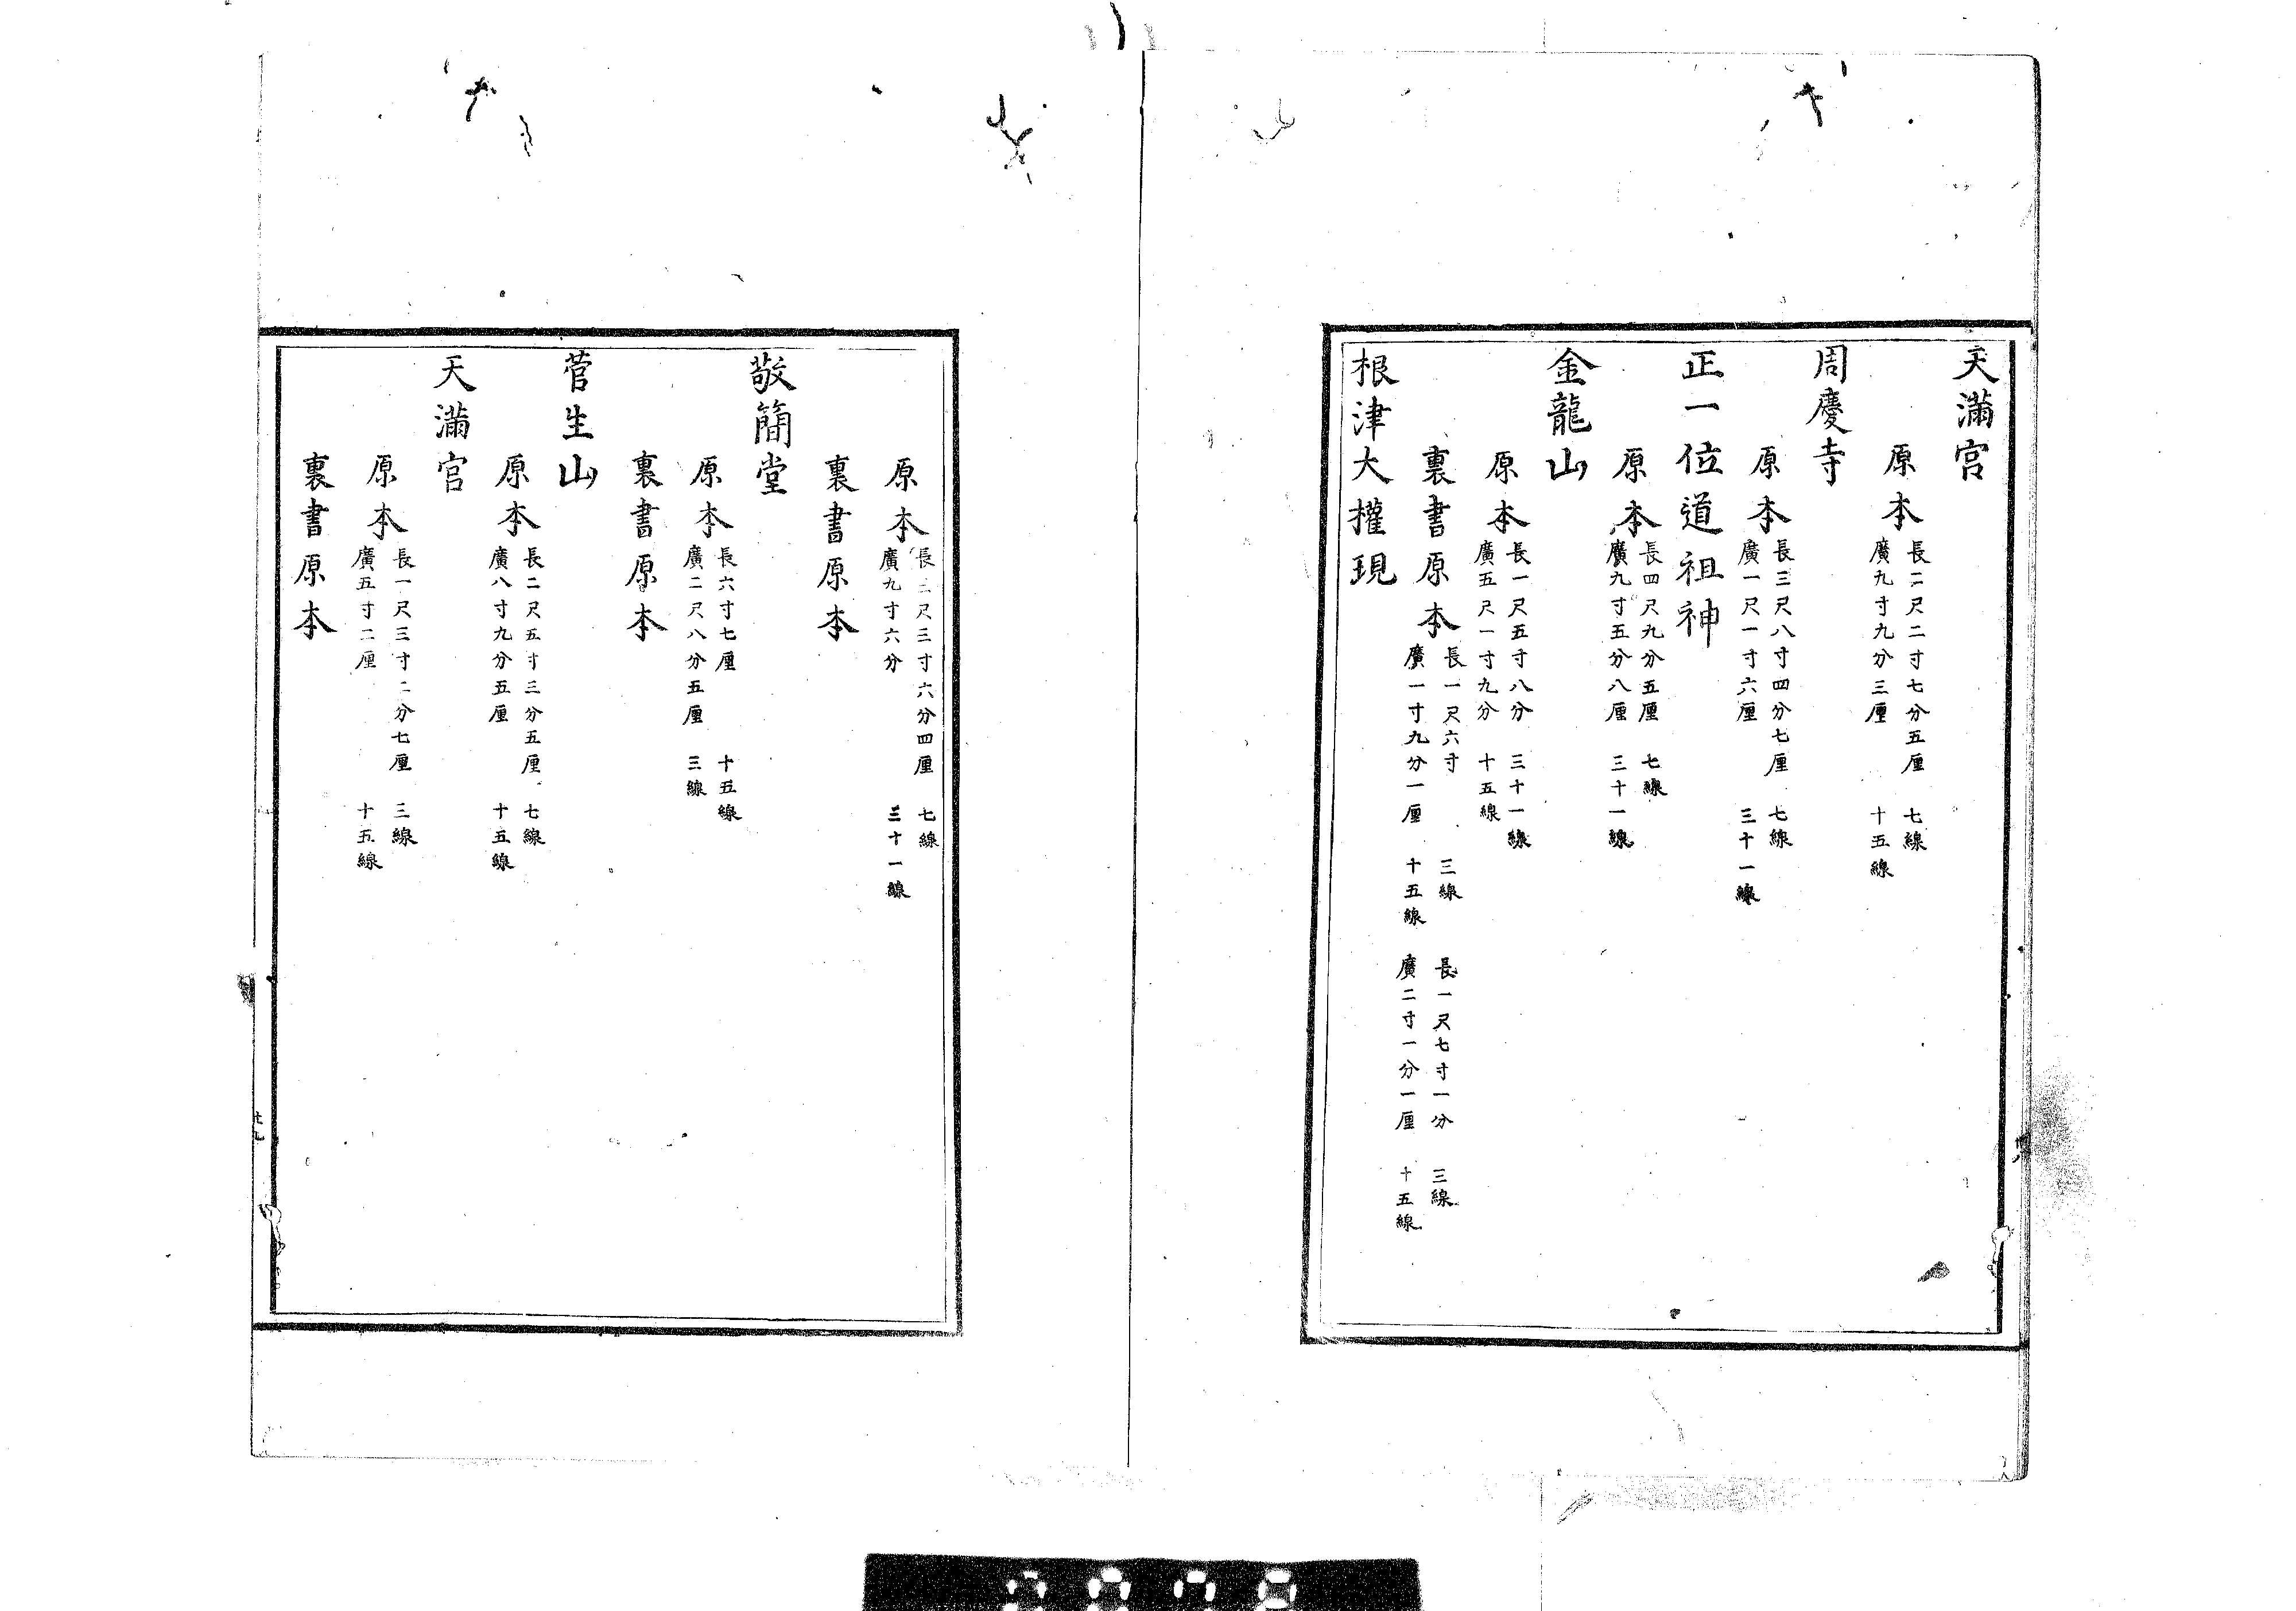 天滿宮
原本
長二尺二寸七分五厘　七線
廣九寸九分三厘　十五線
周慶寺
原本
長三尺八寸四分七厘　七線
廣一尺一寸六厘　三十一線
正一位道祖神
原本
長四尺九分五厘　七線
廣九寸五分八厘　三十一線
金龍山
原本
長一尺五寸八分　三十一線
廣五尺一寸九分　十五線
裏書原本
長一尺六寸　三線　長一尺七寸一分　三線
廣一寸九分一厘　十五線　廣二寸一分一厘　十五線
根津大權現
原本
長三尺三寸六分四厘　七線
廣九寸六分　三十一線
裏書原本
敬簡堂
原本
長六寸七厘　十五線
廣二尺八分五厘　三線
裏書原本
菅生山
原本
長二尺五寸三分五厘　七線
廣八寸九分五厘　十五線
天滿宮
原本
長一尺三寸二分七厘　三線
廣五寸二厘　十五線
裏書原本